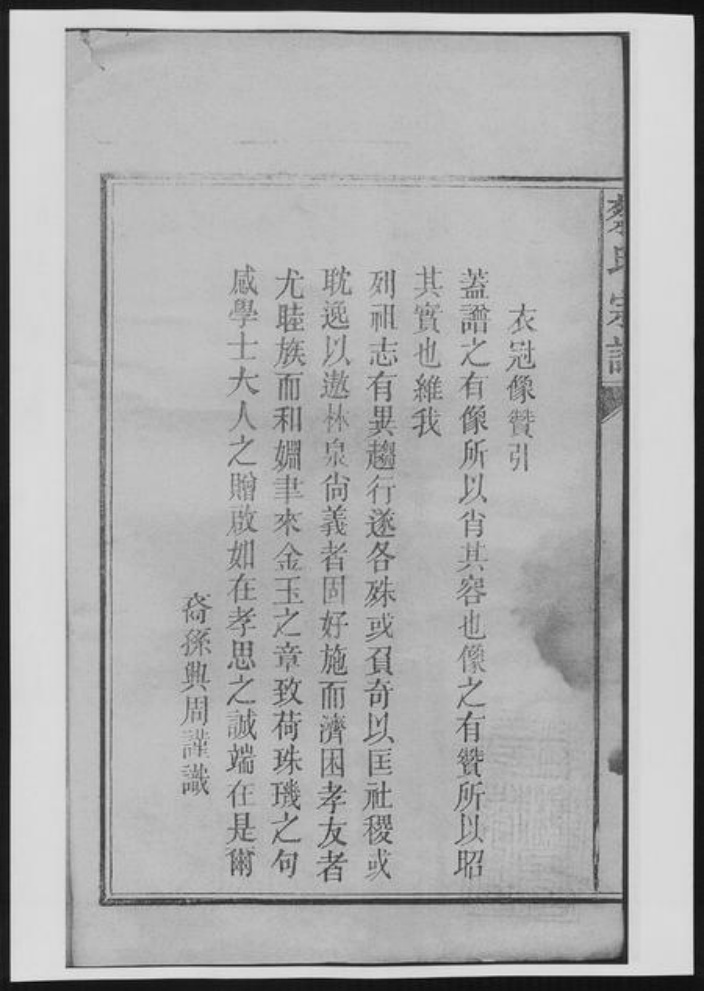 氏宗譜
衣冠像贊引
蓋譜之有像所以肖其容也像之有贊所以昭
其實也維我
列祖志有異趨行遂各殊或負奇以匡社稷或
耽逸以遨林泉尙義者固好施而濟困孝友者
尤睦族而和婣聿來金玉之章致荷珠璣之句
感學士大人之贈啟如在孝思之誠端在是爾
裔孫興周謹識